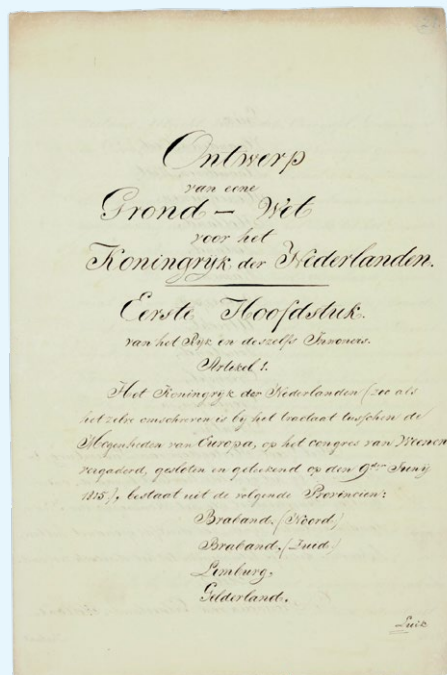 Ontwerp
van eene
Grond – Wet
voor het
Koningryk der Nederlanden.
Eerste Hoofdstuk.
van het Ryk en deszelfs Inwoners.
Artikel 1.
Het Koningryk der Nederlanden (zoo als
hetzelve omschreven is by het tractaat tusschen de
Mogenheden van Europa, op het congres van Weenen
vergaderd, gesloten en geteekend op den 9den Juny
1815), bestaat uit de volgende Provincien:
Braband. (Noord)
Braband. (Zuid)
Limburg,
Gelderland.
Luik